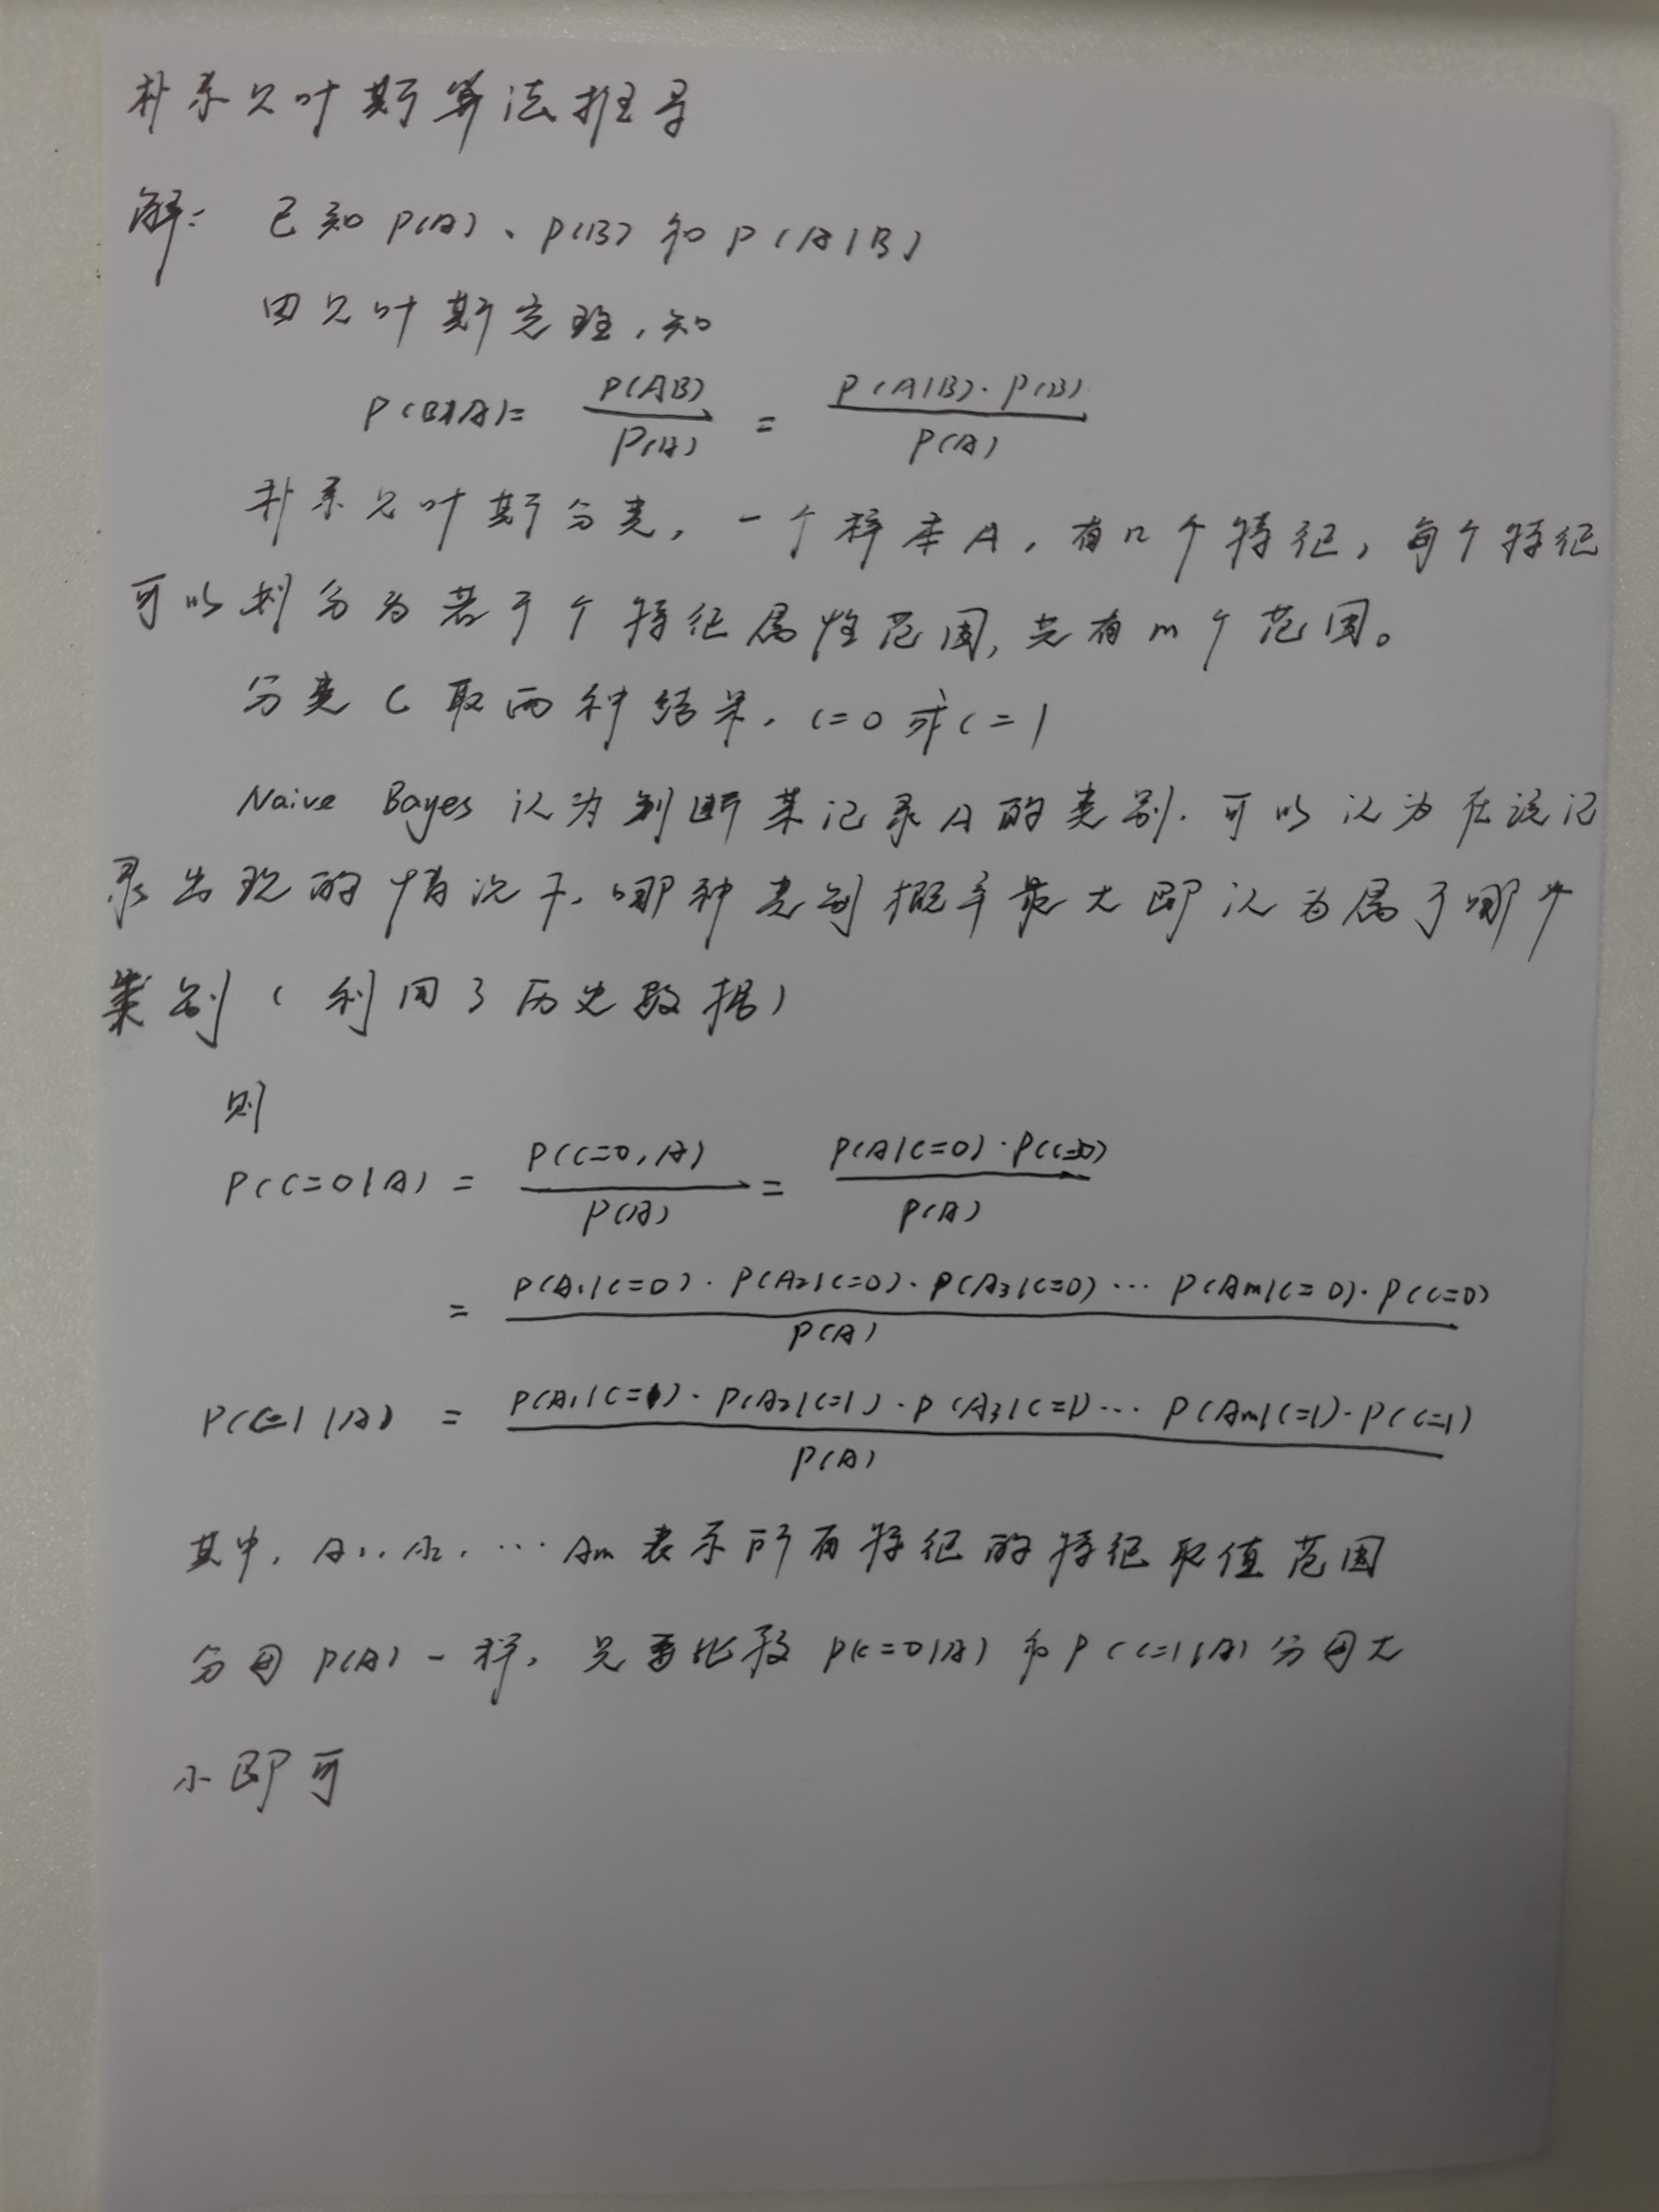 朴素贝叶斯算法推导
解: 已知 P(A)、P(B) 和 P(A|B)
由贝叶斯定理,知
P(B|A)= P(AB)/P(A) = P(A|B)·P(B)/P(A)
朴素贝叶斯分类,一个样本A,有n个特征,每个特征
可以划分为若干个特征属性范围,共有m个范围。
分类C取两种结果,C=0或C=1
Naive Bayes 认为判断某记录A的类别,可以认为在该记
录出现的情况下,哪种类别概率最大即认为属于哪个
类别(利用了历史数据)
则
P(C=0|A) = P(C=0,A)/P(A) = P(A|C=0)·P(C=0)/P(A)
= P(A₁|C=0)·P(A₂|C=0)·P(A₃|C=0)···P(Am|C=0)·P(C=0)/P(A)
P(C=1|A) = P(A₁|C=1)·P(A₂|C=1)·P(A₃|C=1)···P(Am|C=1)·P(C=1)/P(A)
其中,A₁,A₂,···Am表示所有特征的特征取值范围
分母P(A)一样,只要比较P(C=0|A)和P(C=1|A)分母大
小即可